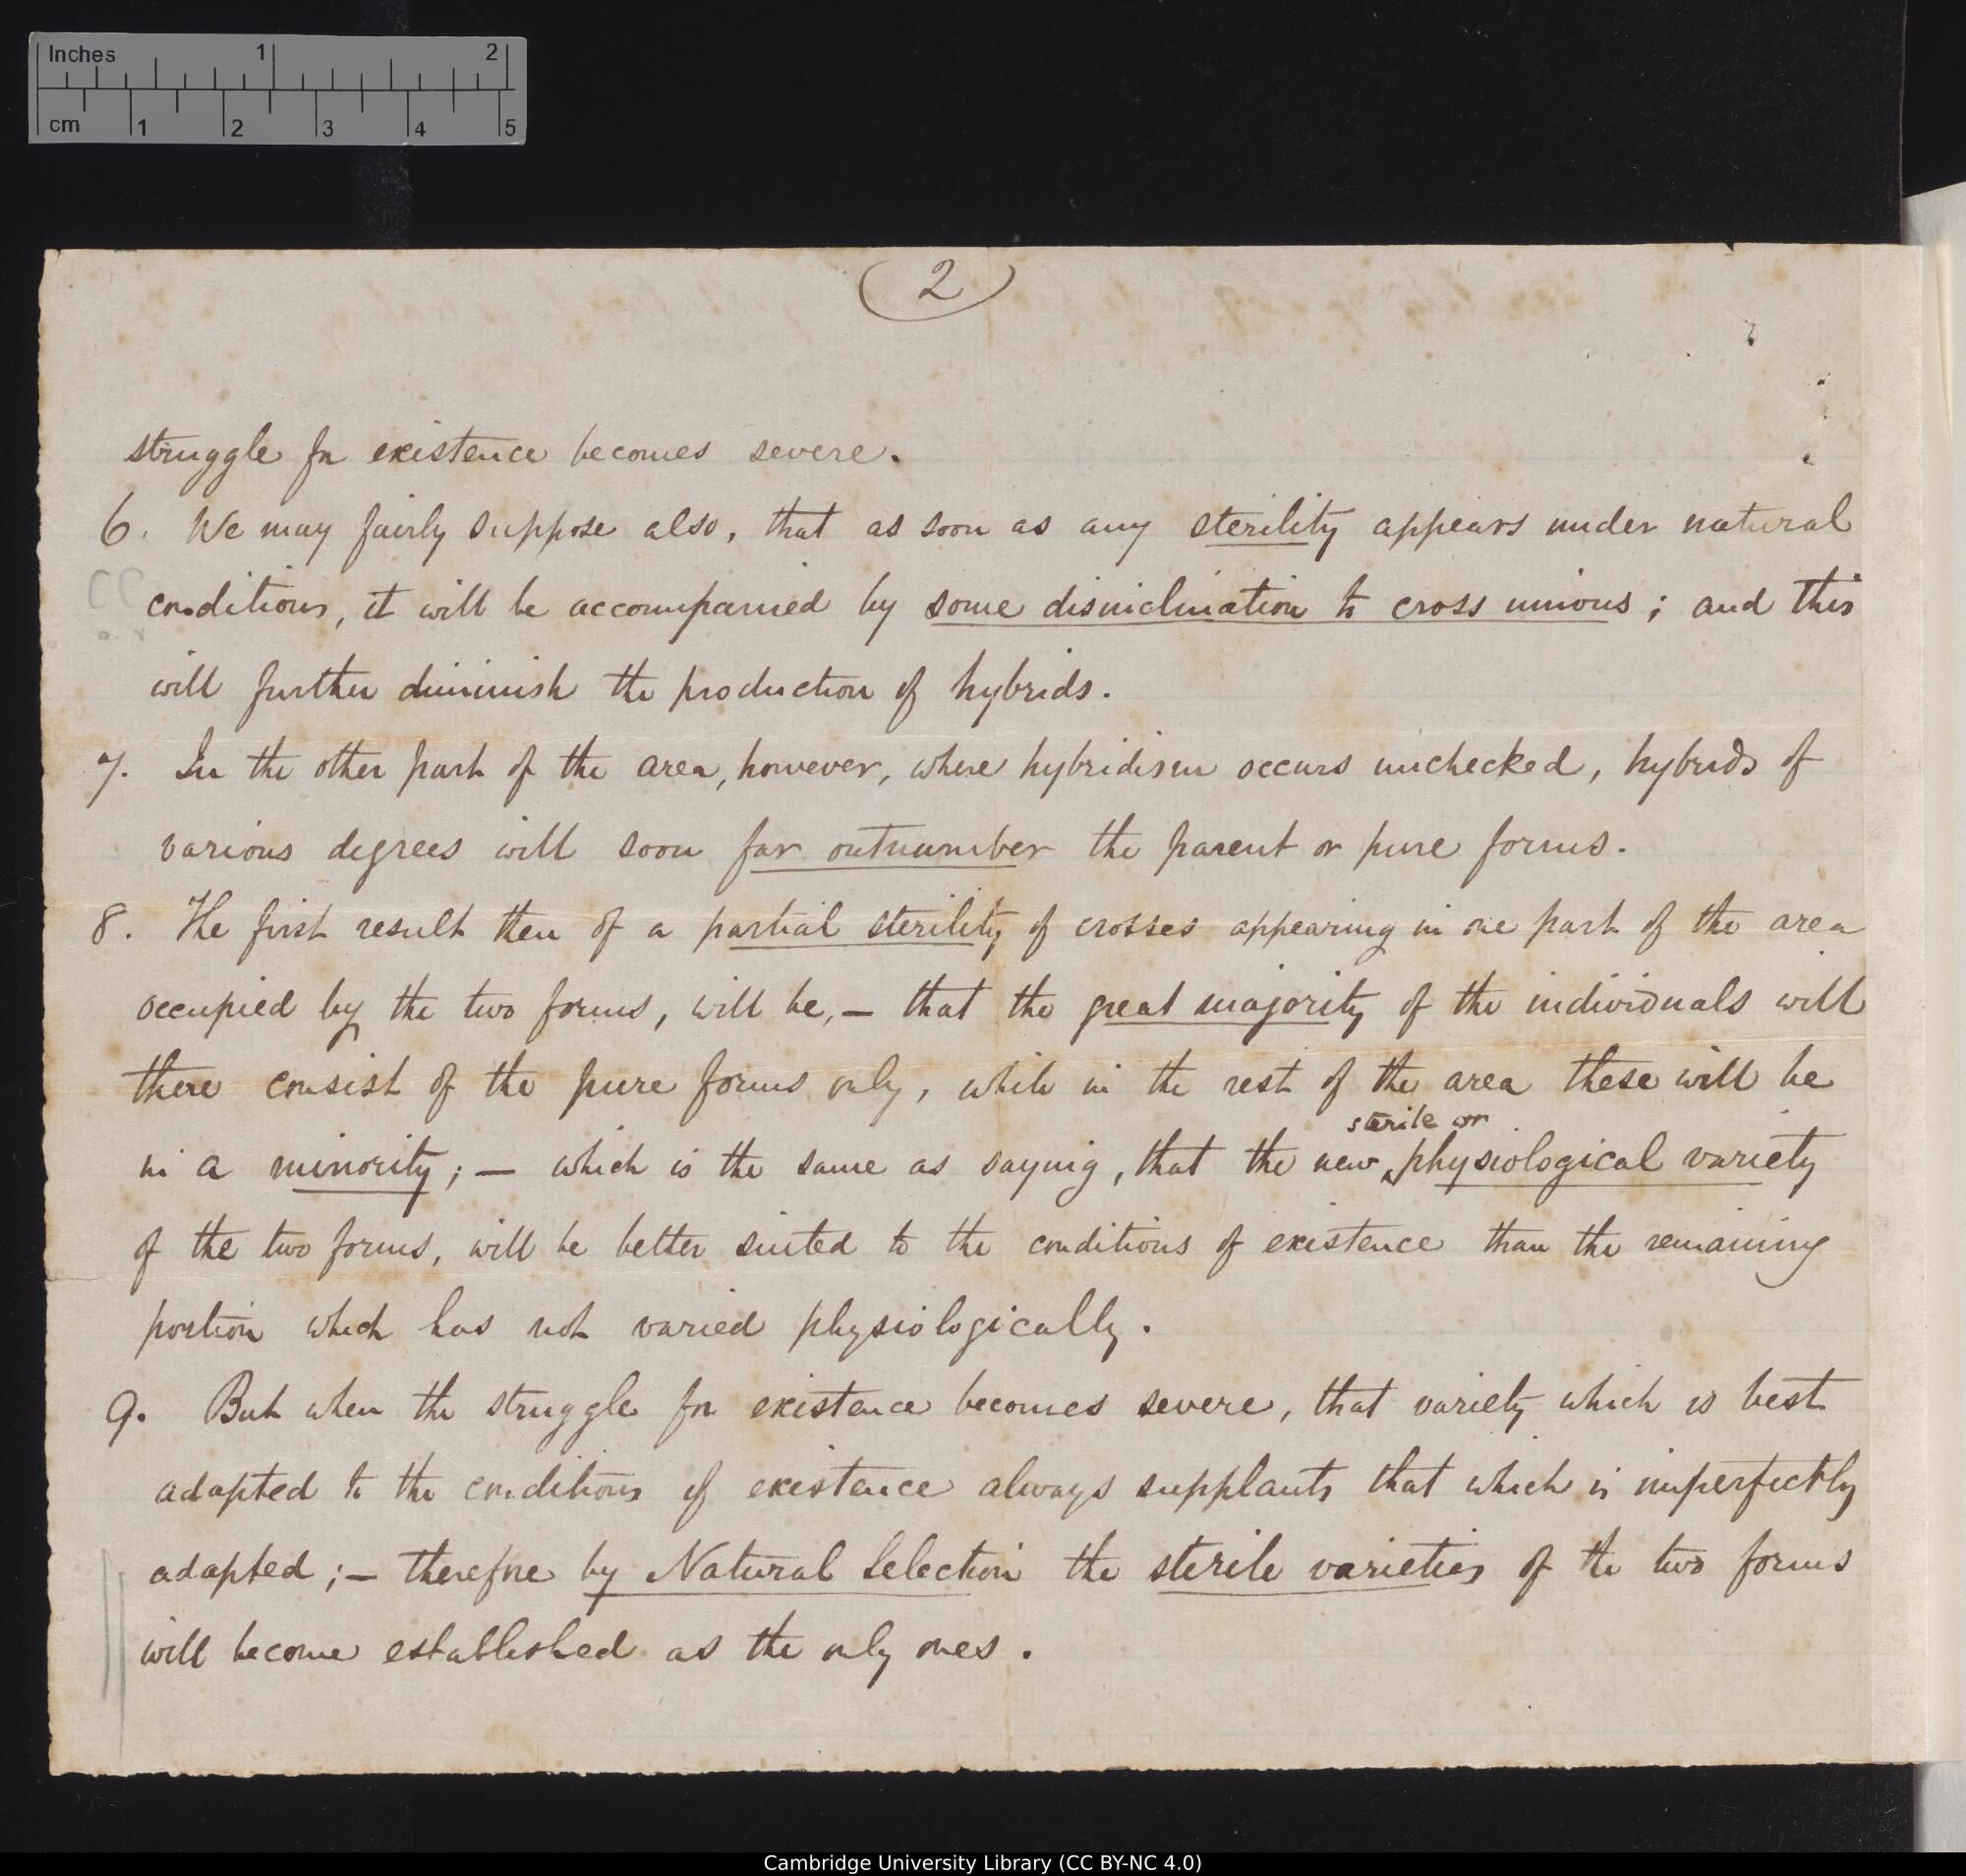 Inches 1 2
cm 1 2 3 4 5
(2)
struggle for existence becomes severe.
6. We may fairly suppose also, that as soon as any sterility appears under natural
conditions, it will be accompanied by some disinclination to cross unions; and this
will further diminish the production of hybrids.
7. In the other part of the area, however, where hybridism occurs unchecked, hybrids of
various degrees will soon far outnumber the parent or pure forms.
8. The first result then of a partial sterility of crosses appearing in one part of the area
occupied by the two forms, will be, — that the great majority of the individuals will
there consist of the pure forms only, while in the rest of the area these will be
sterile or
in a minority; — which is the same as saying, that the new physiological variety
of the two forms, will be better suited to the conditions of existence than the remaining
portion which has not varied physiologically.
9. But when the struggle for existence becomes severe, that variety which is best
adapted to the conditions of existence always supplants that which is imperfectly
adapted; — therefore by Natural Selection the sterile varieties of the two forms
will become established as the only ones.
Cambridge University Library (CC BY-NC 4.0)